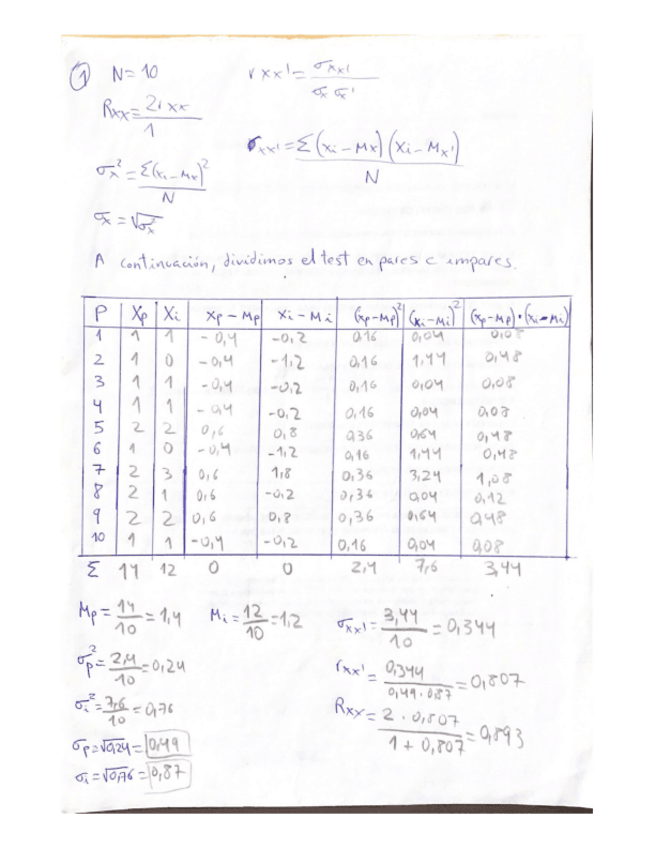 ① N=10 rxx'= σxx' / σx σx'
Rxx= 2rxx / 1
σxx'= Σ(xi-Mx)(xi-Mx') / N
σx²= Σ(xi-Mx)² / N
σx = √σx²
A continuación, dividimos el test en pares e impares.
P Xp Xi Xp-Mp Xi-Mi (xp-Mp)² (xi-Mi)² (xp-Mp)·(xi-Mi)
1 1 1 -0,4 -0,2 0,16 0,04 0,08
2 1 0 -0,4 -1,2 0,16 1,44 0,48
3 1 1 -0,4 -0,2 0,16 0,04 0,08
4 1 1 -0,4 -0,2 0,16 0,04 0,08
5 2 2 0,6 0,8 0,36 0,64 0,48
6 1 0 -0,4 -1,2 0,16 1,44 0,48
7 2 3 0,6 1,8 0,36 3,24 1,08
8 2 1 0,6 -0,2 0,36 0,04 0,12
9 2 2 0,6 0,8 0,36 0,64 0,48
10 1 1 -0,4 -0,2 0,16 0,04 0,08
Σ 14 12 0 0 2,4 7,6 3,44
Mp= 14/10 =1,4 Mi= 12/10 =1,2 σxx'= 3,44/10 =0,344
σp²= 2,4/10 =0,24
rxx'= 0,344 / 0,49·0,87 =0,807
σi²= 7,6/10 =0,76
Rxx= 2·0,807 / 1+0,807 =0,893
σp=√0,24= 0,49
σi=√0,76= 0,87